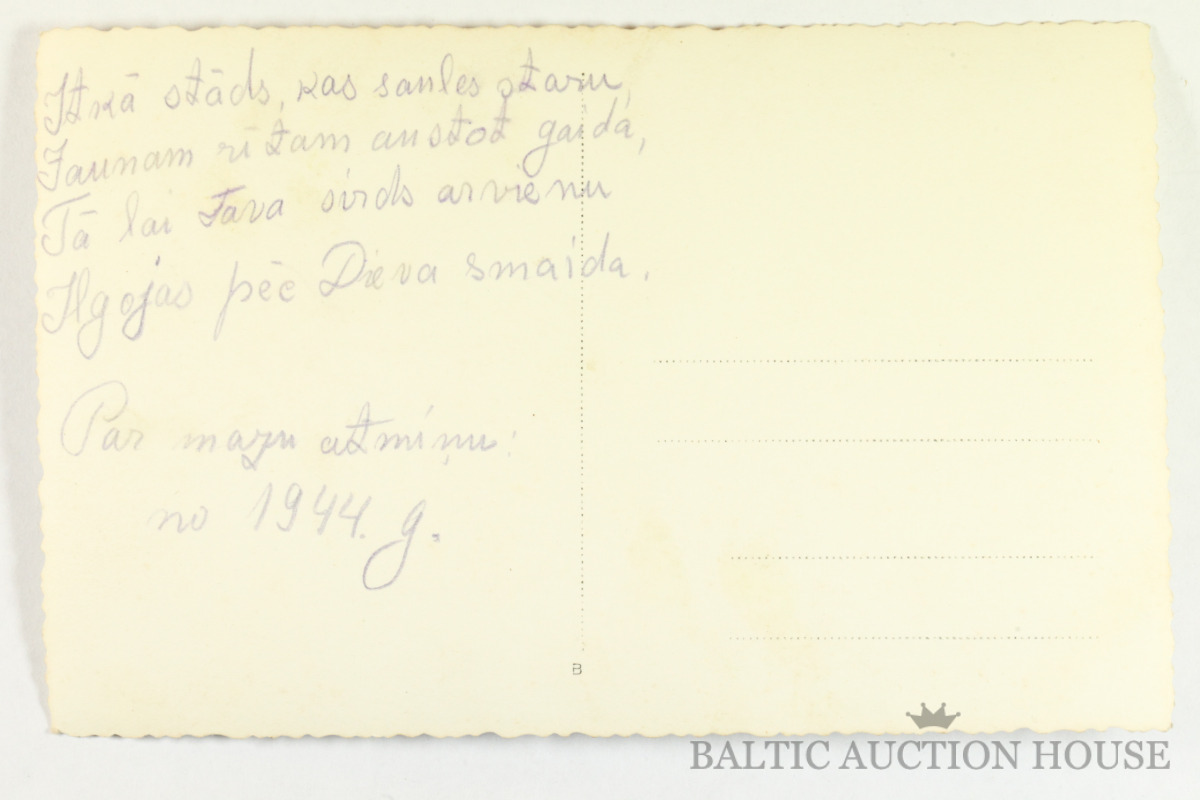 Itkā stāds, kas saules staru,
Jaunam rītam austot gaida,
Tā lai Tava sirds arvienu
Ilgojas pēc Dieva smaida.
Par mazu atmiņu:
no 1944. g.
B
BALTIC AUCTION HOUSE